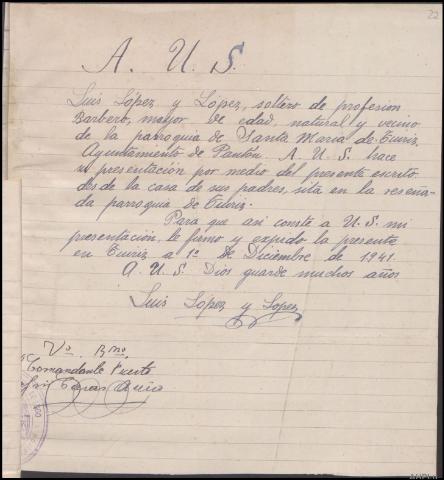 22
A. U. S.
Luis López y López, soltero de profesion
Barbero, mayor de edad, natural y vecino
de la parroquia de Santa Maria de Tuiriz,
Ayuntamiento de Pantón, A. U. S. hace
su presentación por medio del presente escrito
desde la casa de sus padres, sita en la reseña-
da parroquia de Tuiriz.
Para que asi conste a U. S. mi
presentación, le firmo y expido la presente
en Tuiriz a 1º de Diciembre de 1941.
A U. S. Dios guarde muchos años
Luis López y Lopez
Vº. Bnº.
Comandante Puesto